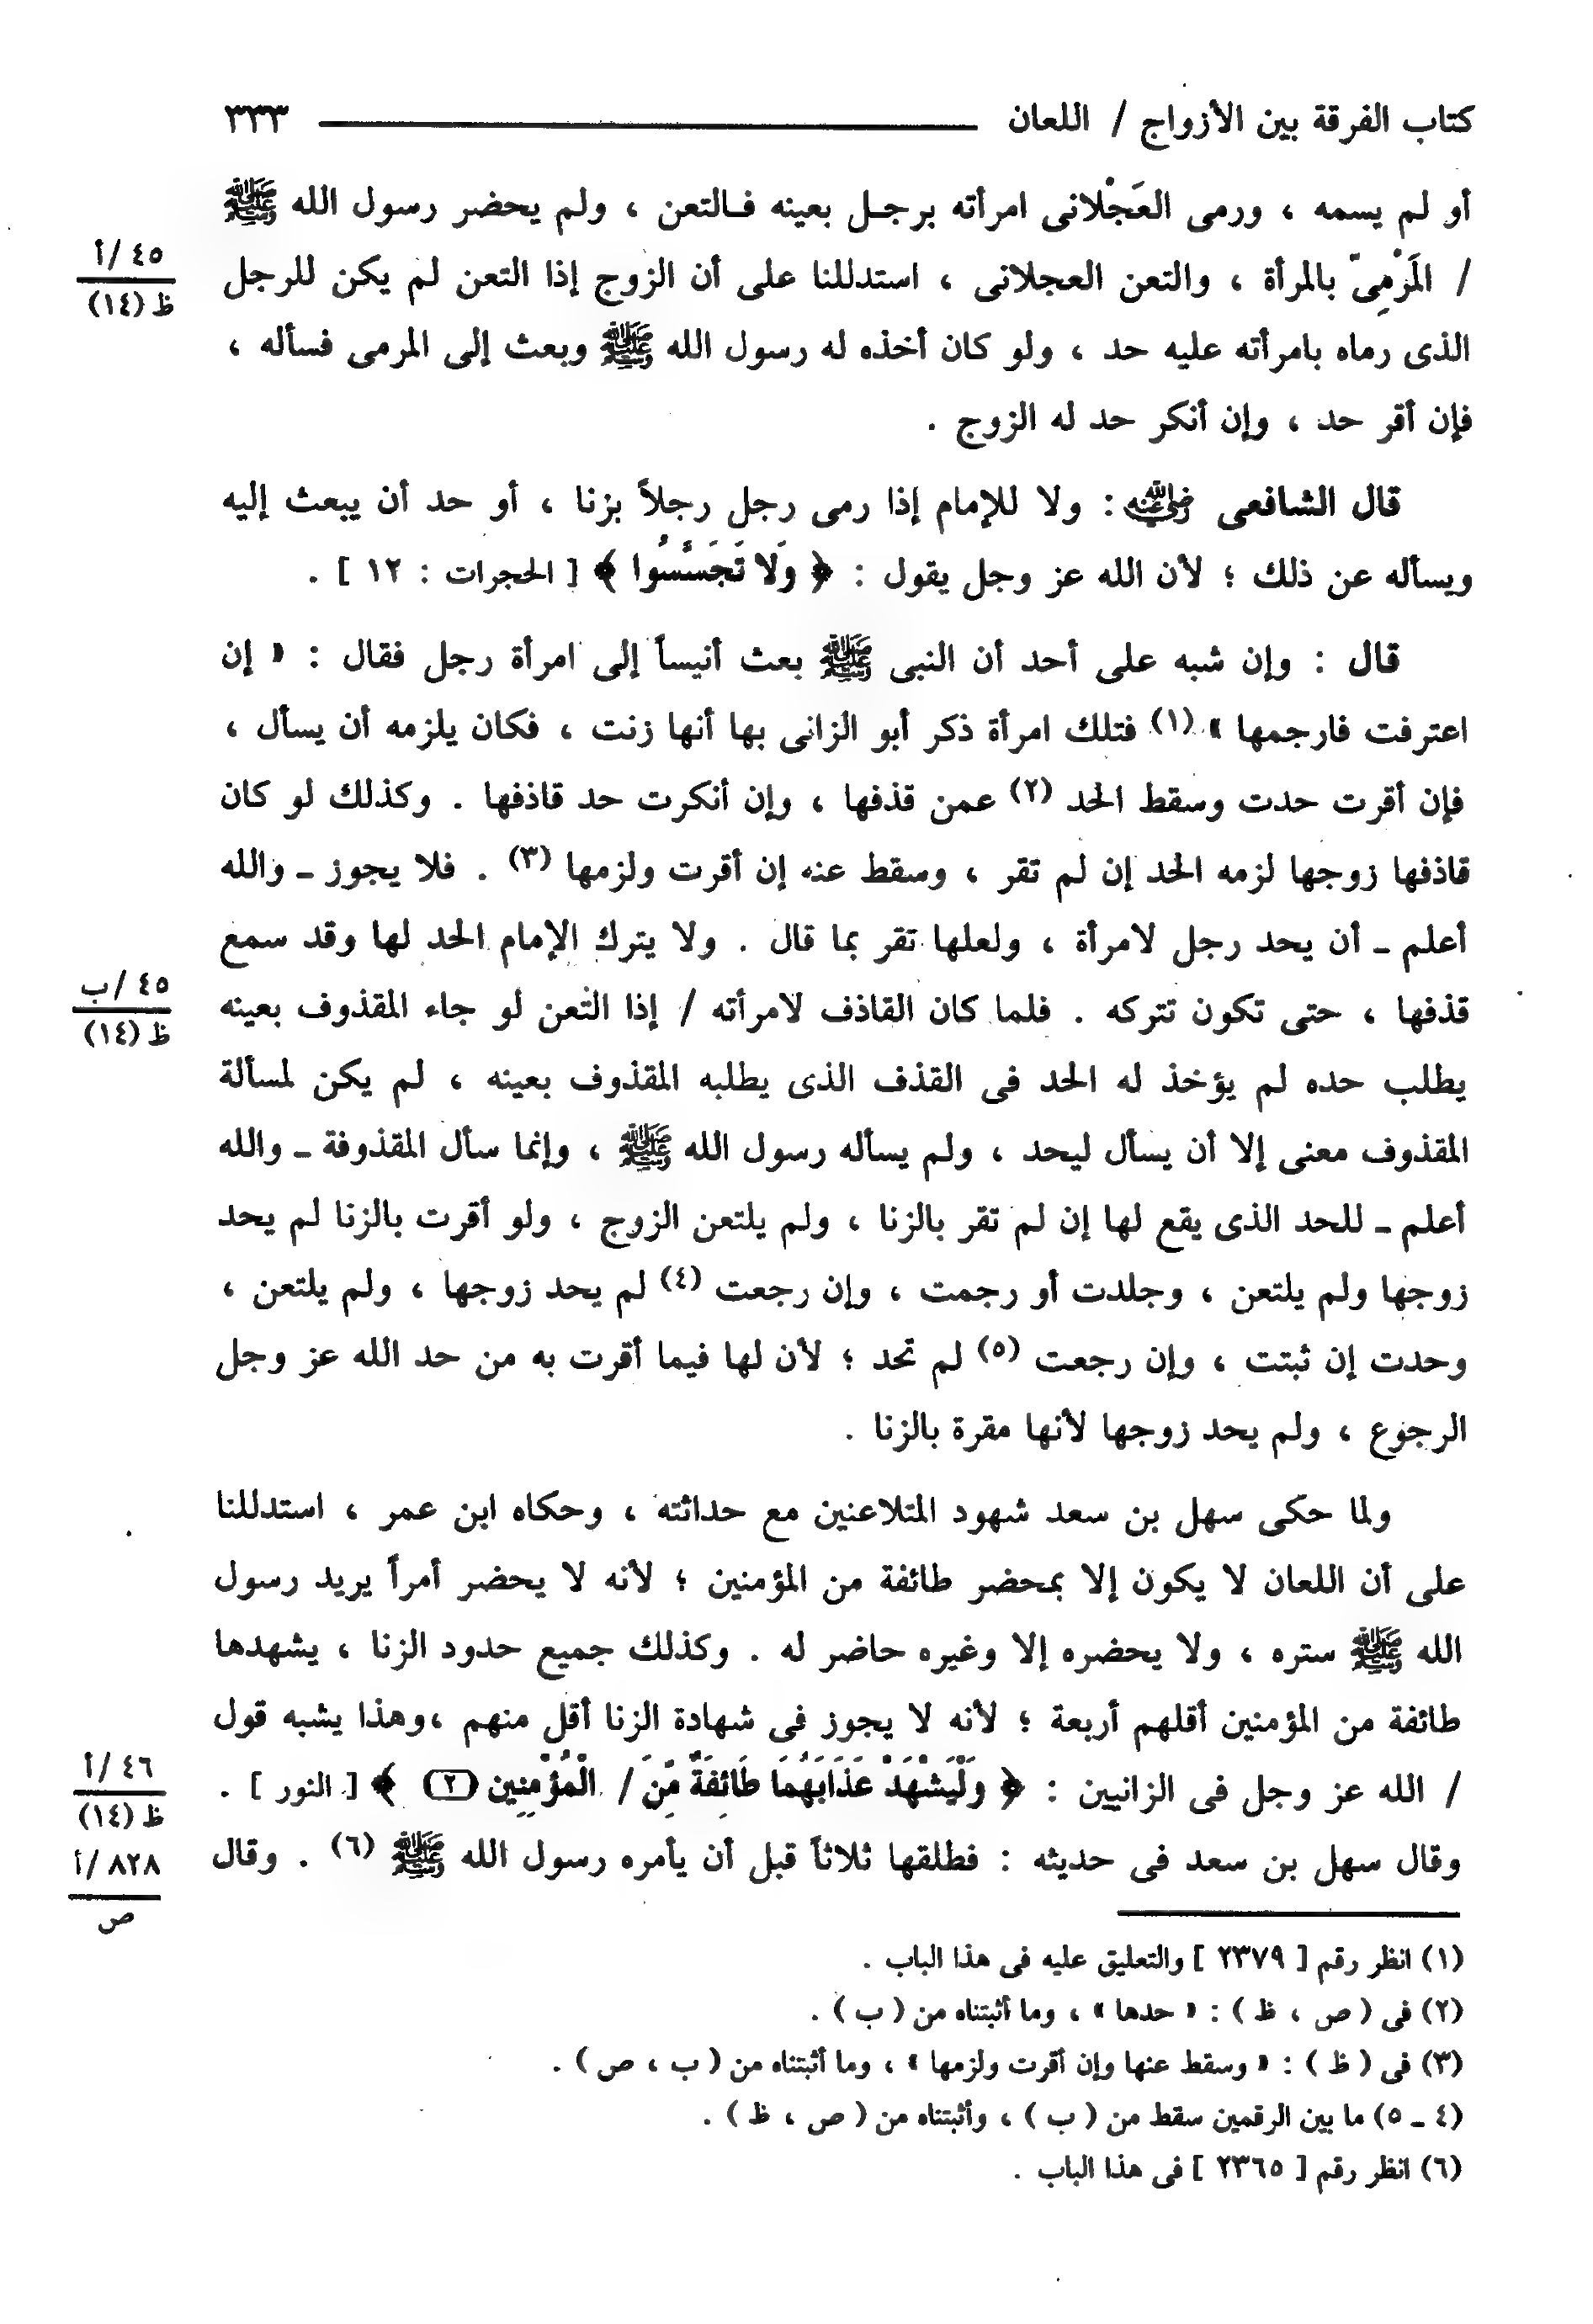 كتاب الفرقة بين الأزواج / اللعان ٣٣٣
أو لم يسمه ، ورمى العَجْلانى امرأته برجـل بعينه فـالتعن ، ولم يحضر رسول الله ﷺ
/ المَرْمِىّ بالمرأة ، والتعن العجلانى ، استدللنا على أن الزوج إذا التعن لم يكن للرجل
٤٥ /أ
ظ (١٤)
الذى رماه بامرأته عليه حد ، ولو كان أخذه له رسول الله ﷺ وبعث إلى المرمى فسأله ،
فإن أقر حد ، وإن أنكر حد له الزوج .
قال الشافعى رضي الله عنه : ولا للإمام إذا رمى رجل رجلاً بزنا ، أو حد أن يبعث إليه
ويسأله عن ذلك ؛ لأن الله عز وجل يقول : ﴿ وَلَا تَجَسَّسُوا ﴾ [ الحجرات : ١٢ ] .
قال : وإن شبه على أحد أن النبى ﷺ بعث أنيساً إلى امرأة رجل فقال : « إن
اعترفت فارجمها » (١) فتلك امرأة ذكر أبو الزانى بها أنها زنت ، فكان يلزمه أن يسأل ،
فإن أقرت حدت وسقط الحد (٢) عمن قذفها ، وإن أنكرت حد قاذفها . وكذلك لو كان
قاذفها زوجها لزمه الحد إن لم تقر ، وسقط عنه إن أقرت ولزمها (٣) . فلا يجوز ـ والله
أعلم ـ أن يحد رجل لامرأة ، ولعلها تقر بما قال . ولا يترك الإمام الحد لها وقد سمع
قذفها ، حتى تكون تتركه . فلما كان القاذف لامرأته / إذا التعن لو جاء المقذوف بعينه
٤٥ /ب
ظ (١٤)
يطلب حده لم يؤخذ له الحد فى القذف الذى يطلبه المقذوف بعينه ، لم يكن لمسألة
المقذوف معنى إلا أن يسأل ليحد ، ولم يسأله رسول الله ﷺ ، وإنما سأل المقذوفة ـ والله
أعلم ـ للحد الذى يقع لها إن لم تقر بالزنا ، ولم يلتعن الزوج ، ولو أقرت بالزنا لم يحد
زوجها ولم يلتعن ، وجلدت أو رجمت ، وإن رجعت (٤) لم يحد زوجها ، ولم يلتعن ،
وحدت إن ثبتت ، وإن رجعت (٥) لم تحد ؛ لأن لها فيما أقرت به من حد الله عز وجل
الرجوع ، ولم يحد زوجها لأنها مقرة بالزنا .
ولما حكى سهل بن سعد شهود المتلاعنين مع حداثته ، وحكاه ابن عمر ، استدللنا
على أن اللعان لا يكون إلا بمحضر طائفة من المؤمنين ؛ لأنه لا يحضر أمراً يريد رسول
الله ﷺ ستره ، ولا يحضره إلا وغيره حاضر له . وكذلك جميع حدود الزنا ، يشهدها
طائفة من المؤمنين أقلهم أربعة ؛ لأنه لا يجوز فى شهادة الزنا أقل منهم ،وهذا يشبه قول
/ الله عز وجل فى الزانيين : ﴿ وَلْيَشْهَدْ عَذَابَهُمَا طَائِفَةٌ مِّنَ / الْمُؤْمِنِين (٢) ﴾ [ النور ] .
٤٦ /أ
ظ (١٤)
٨٢٨ /أ
ص
وقال سهل بن سعد فى حديثه : فطلقها ثلاثاً قبل أن يأمره رسول الله ﷺ (٦) . وقال
(١) انظر رقم [ ٢٣٧٩ ] والتعليق عليه فى هذا الباب .
(٢) فى ( ص ، ظ ) : « حدها » ، وما أثبتناه من ( ب ) .
(٣) فى ( ظ ) : « وسقط عنها وإن أقرت ولزمها » ، وما أثبتناه من ( ب ، ص ) .
(٤ ـ ٥) ما بين الرقمين سقط من ( ب ) ، وأثبتناه من ( ص ، ظ ) .
(٦) انظر رقم [ ٢٣٦٥ ] فى هذا الباب .